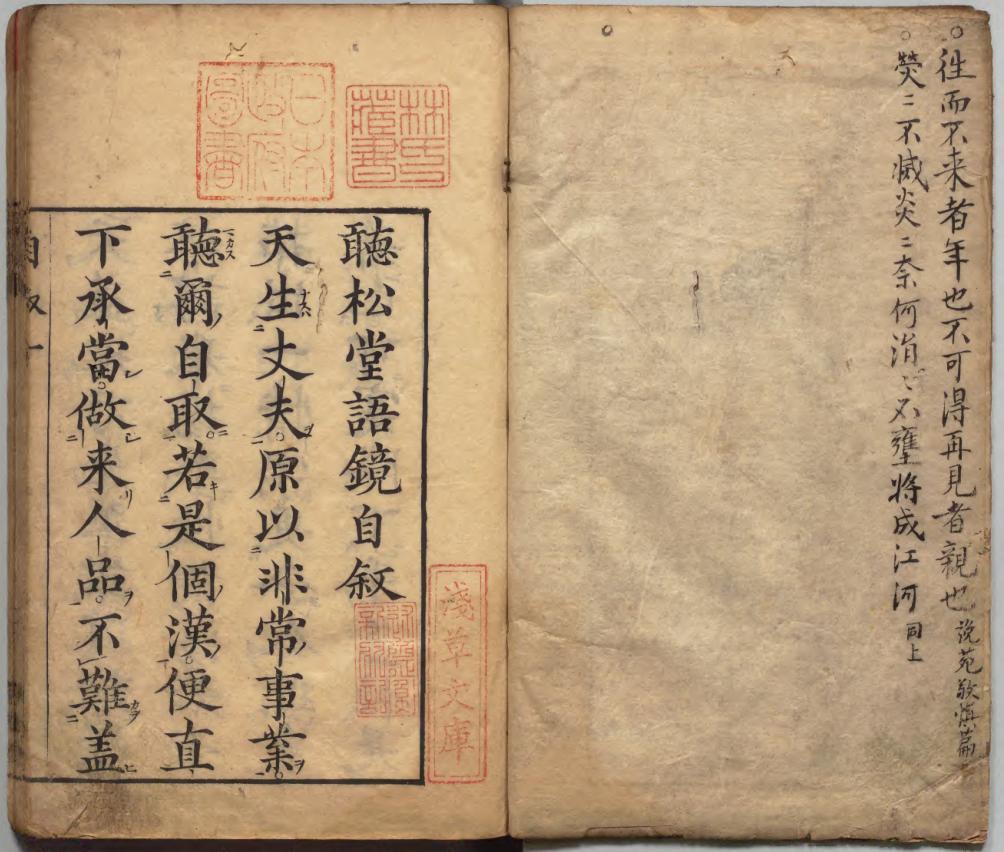 ○往而不来者年也不可得再見者親也 説苑敬慎篇
○熒〻不滅炎〻奈何涓〻不壅将成江河 同上
林氏蔵書
日本政府圖書
淺草文庫
聽松堂語鏡自敘
天生丈夫原以非常事業
聽爾自取若是個漢便直
下承當做来人品不難盖